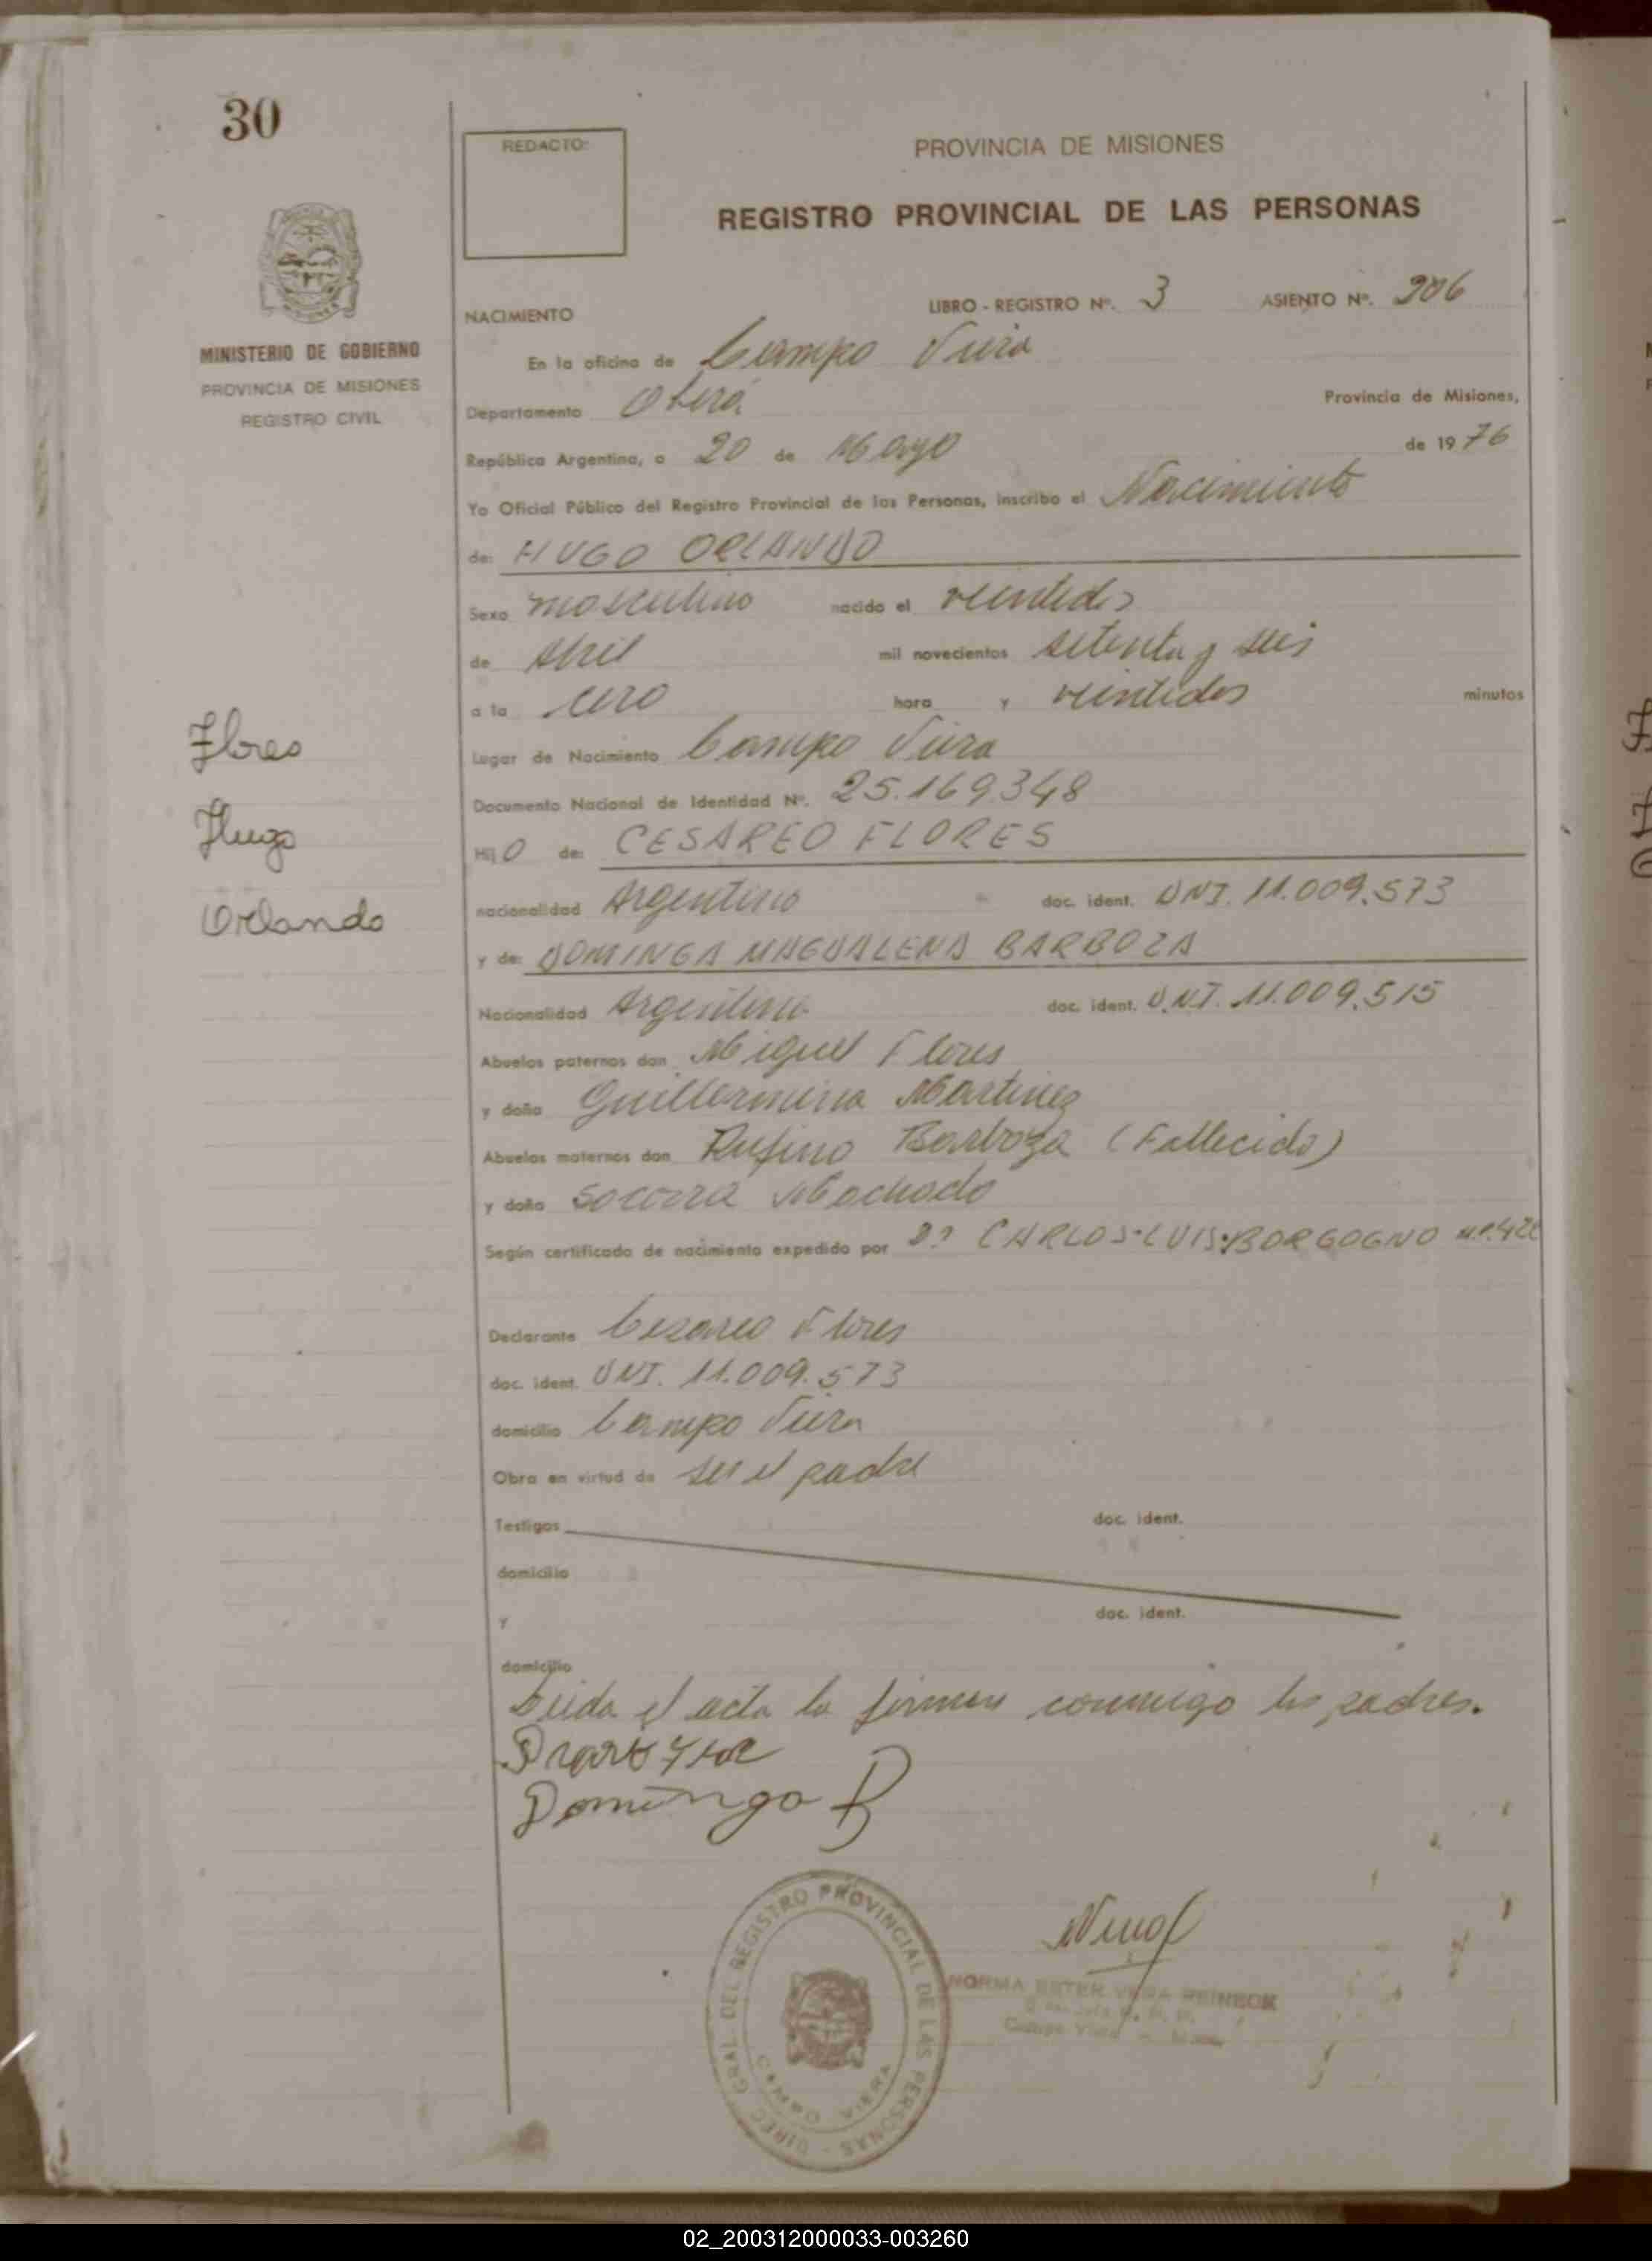 30
REDACTO:
PROVINCIA DE MISIONES
REGISTRO PROVINCIAL DE LAS PERSONAS
MINISTERIO DE GOBIERNO
PROVINCIA DE MISIONES
REGISTRO CIVIL
NACIMIENTO LIBRO - REGISTRO Nº. 3 ASIENTO Nº. 206
En la oficina de Campo Viera
Departamento Oberá Provincia de Misiones,
República Argentina, a 20 de Mayo de 1976
Yo Oficial Público del Registro Provincial de las Personas, inscribo el Nacimiento
de: HUGO ORLANDO
Sexo masculino nacido el veintidos
de Abril mil novecientos setenta y seis
a la cero hora y veintidos minutos
Lugar de Nacimiento Campo Viera
Documento Nacional de Identidad Nº. 25.169.348
Hijo de: CESAREO FLORES
nacionalidad Argentino doc. ident. DNI. 11.009.573
y de: DOMINGA MAGDALENA BARBOZA
Nacionalidad Argentina doc. ident. D.N.I. 11.009.515
Abuelos paternos don Miguel Flores
y doña Guillermina Martinez
Abuelos maternos don Rufino Barboza (Fallecido)
y doña Socorra Machado
Según certificado de nacimiento expedido por Dr CARLOS LUIS BORGOGNO
Declarante Cesareo Flores
doc. ident. DNI. 11.009.573
domicilio Campo Viera
Obra en virtud de ser el padre
Testigos doc. ident.
domicilio
y doc. ident.
domicilio
Leida el acta la firman conmigo los padres.
Domingo B
Flores
Hugo
Orlando
DIREC. GRAL. DEL REGISTRO PROVINCIAL DE LAS PERSONAS
CAMPO VIERA
NORMA ESTER VERA REINECK
Campo Viera
02_200312000033-003260